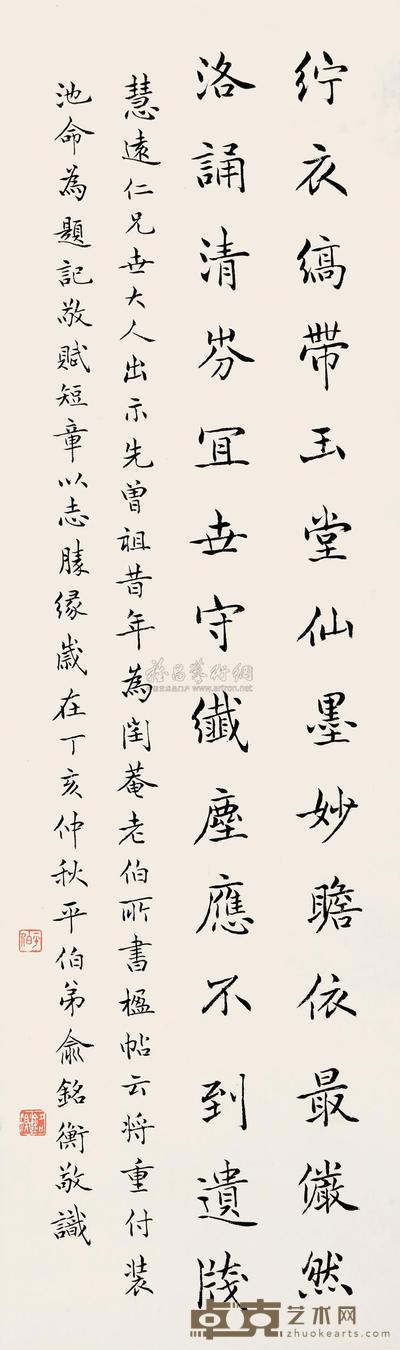 紵衣縞帶玉堂仙墨妙瞻依最儼然
洛誦清芬冝世守纖塵應不到遺牋
慧遠仁兄世大人出示先曾祖昔年為閏菴老伯所書楹帖云將重付裝
池命為題記敬賦短章以志勝緣歲在丁亥仲秋平伯弟俞銘衡敬識
平伯
www.artron.net
卓克艺术网
zhuokearts.com